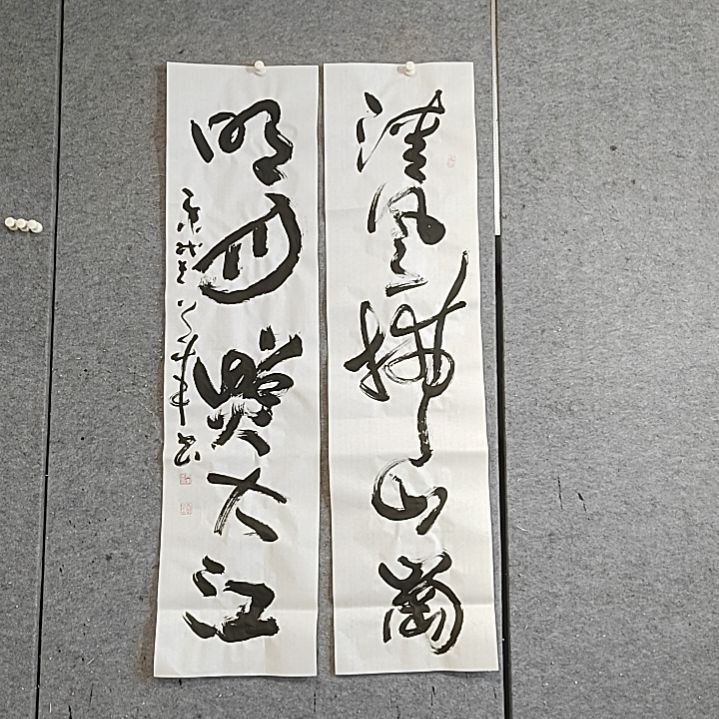 清風拂山崗
明月照大江